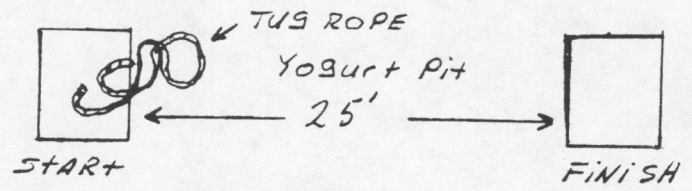 TUG ROPE
Yogurt Pit
25'
START
FINISH